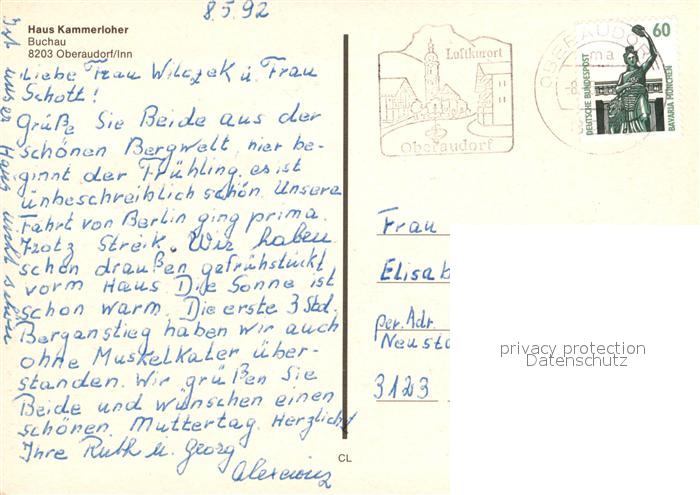 8.5.92
Haus Kammerloher
Buchau
8203 Oberaudorf/Inn
Liebe Frau Wilczek u. Frau
Schott!
Grüße Sie Beide aus der
schönen Bergwelt, hier be-
ginnt der Frühling. es ist
unbeschreiblich schön. Unsere
Fahrt von Berlin ging prima.
Trotz Streik. Wir haben
schon draußen gefrühstückt
vorm Haus. Die Sonne ist
schon warm. Die erste 3 Std.
Berganstieg haben wir auch
ohne Muskelkater über-
standen. Wir grüßen Sie
Beide und wünschen einen
schönen Muttertag. Herzlichst
Ihre Ruth u. Georg
Ist unser Haus nicht schön
CL
Luftkurort
Oberaudorf
OBERAUDORF
ma
-8.
60
DEUTSCHE BUNDESPOST
BAVARIA MÜNCHEN
Frau
Elisab
per. Adr.
Neusta
3123
privacy protection
Datenschutz